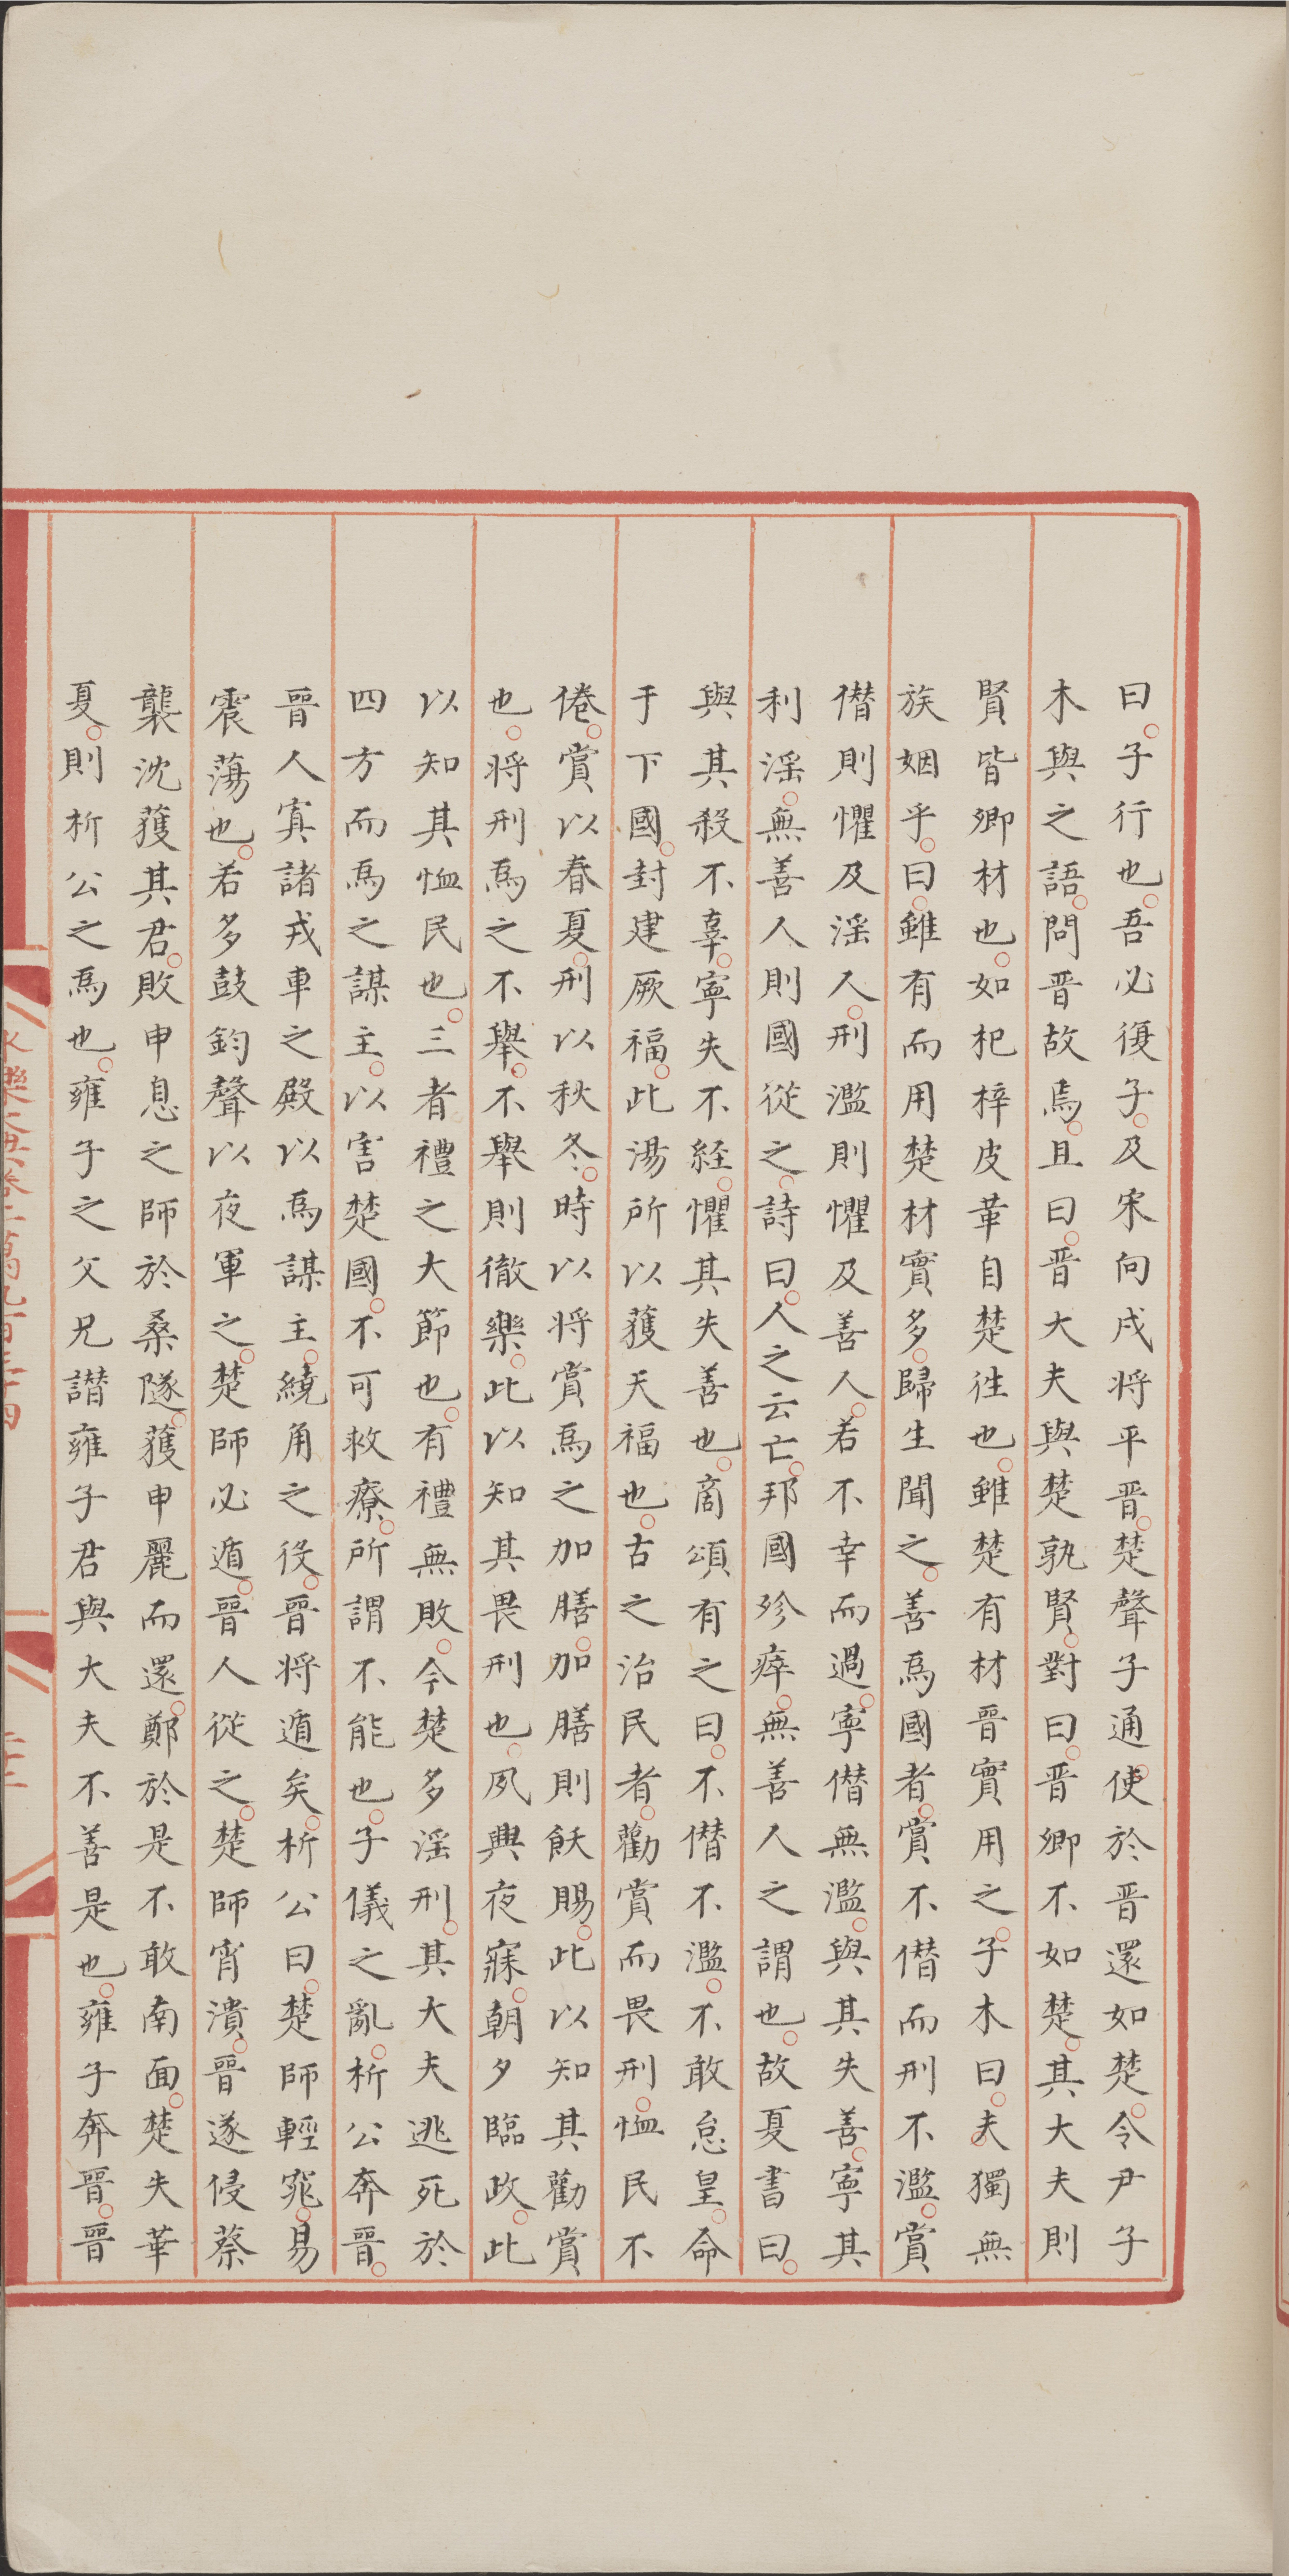 曰。子行也。吾必復子。及宋向戌将平晋。楚聲子通使於晋還如楚。令尹子
木與之語。問晋故焉。且曰。晋大夫與楚孰賢。對曰。晋卿不如楚。其大夫則
賢皆卿材也。如杞梓皮革自楚往也。雖楚有材晋實用之。子木曰。夫獨無
族姻乎。曰。雖有而用楚材實多。歸生聞之。善為國者。賞不僭而刑不濫。賞
僭則懼及淫人。刑濫則懼及善人。若不幸而過。寧僭無濫。與其失善。寧其
利淫。無善人則國從之。詩曰。人之云亡。邦國殄瘁。無善人之謂也。故夏書曰。
與其殺不辜。寧失不經。懼其失善也。商頌有之曰。不僭不濫。不敢怠皇。命
于下國。封建厥福。此湯所以獲天福也。古之治民者。勸賞而畏刑。恤民不
倦。賞以春夏。刑以秋冬。時以将賞為之加膳。加膳則飫賜。此以知其勸賞
也。将刑為之不舉。不舉則徹樂。此以知其畏刑也。夙興夜寐。朝夕臨政。此
以知其恤民也。三者禮之大節也。有禮無敗。今楚多淫刑。其大夫逃死於
四方而為之謀主。以害楚國。不可救療。所謂不能也。子儀之亂。析公奔晉。
晉人寘諸戎車之殿以為謀主。繞角之役。晉将遁矣。析公曰。楚師輕窕。易
震蕩也。若多鼓鈞聲以夜軍之。楚師必遁。晉人從之。楚師宵潰。晉遂侵蔡
襲沈獲其君。敗申息之師於桑隧。獲申麗而還。鄭於是不敢南面。楚失華
夏。則析公之為也。雍子之父兄譖雍子君與大夫不善是也。雍子奔晉。晉
永樂大典卷二萬九百三十四